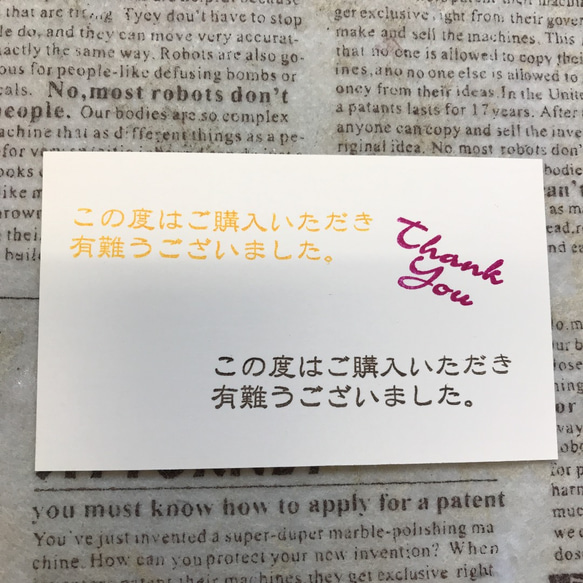 that are tiring. Tyey dou't have to stop
do, and they can move very accurat-
the same way. Robots are also go-
for people-like defusing bombs or
No,most robots don't
people. Our bodies are so complex
machine that as different things as a pe-
exclusive right from their
make and sell the machines. This
that no one is allowed to copy their
no one else is allowed to
from their ideas. In the
a patants lasts for 17 years. After
anyone can copy and sell the
idea. No most robots don'
この度はご購入いただき
有難うございました。
Thank
You
この度はご購入いただき
有難うございました。
you must know how to apply for a patent
You've just invented a super-duper marble-polishing ma
chine. How can you protect your new invention? When
their machines they get exclusive right